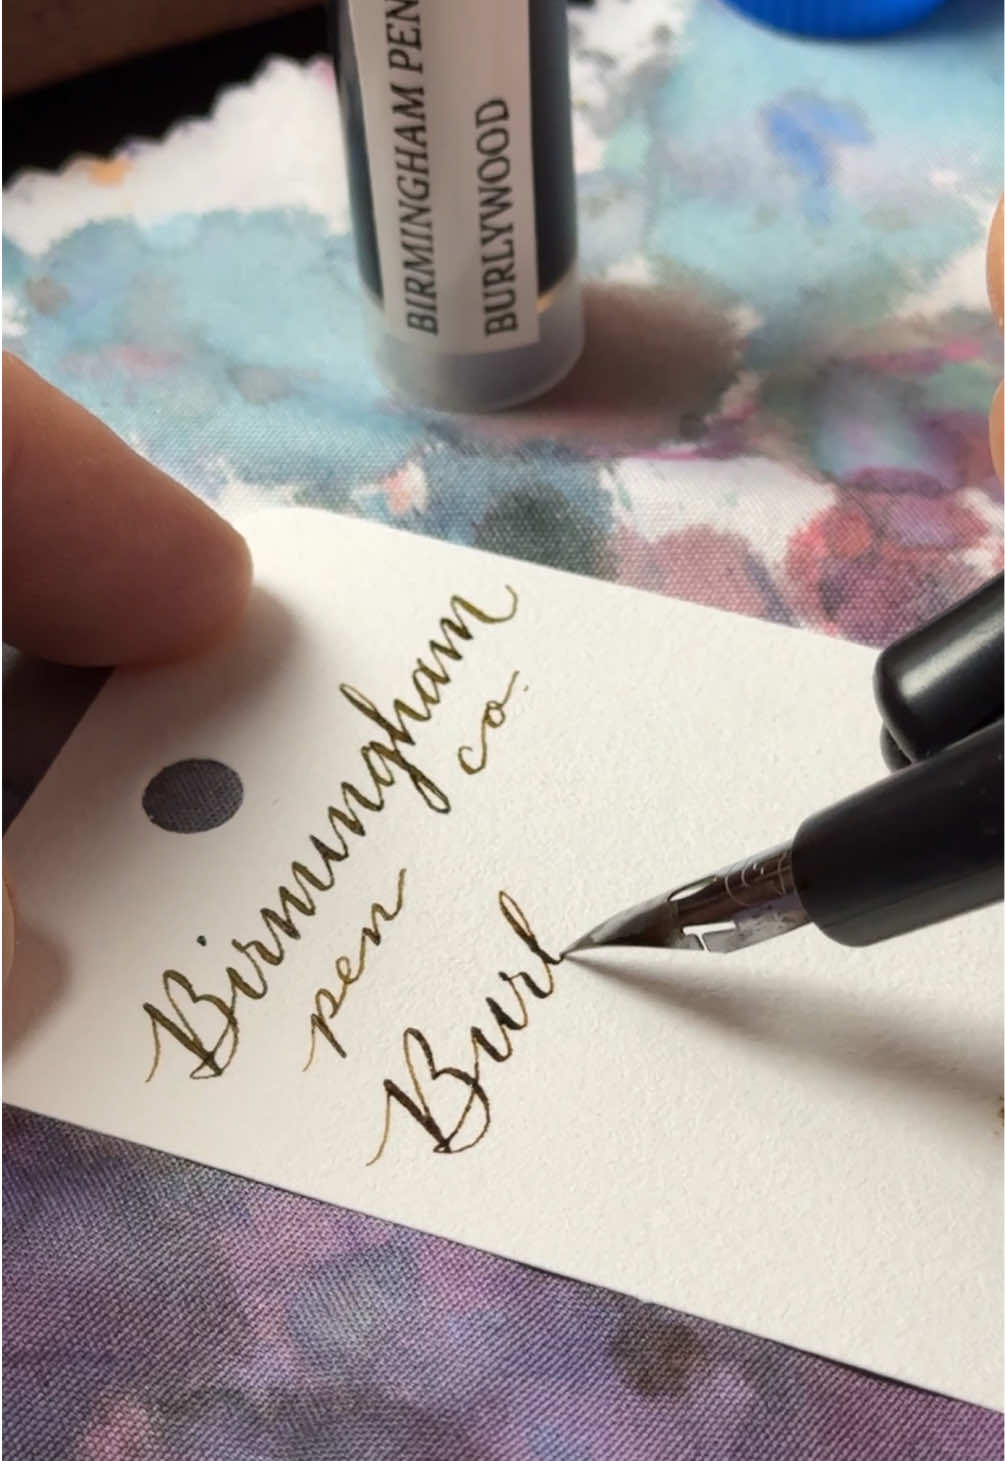 BIRMINGHAM PEN
BURLYWOOD
Birmingham
pen co.
Burl